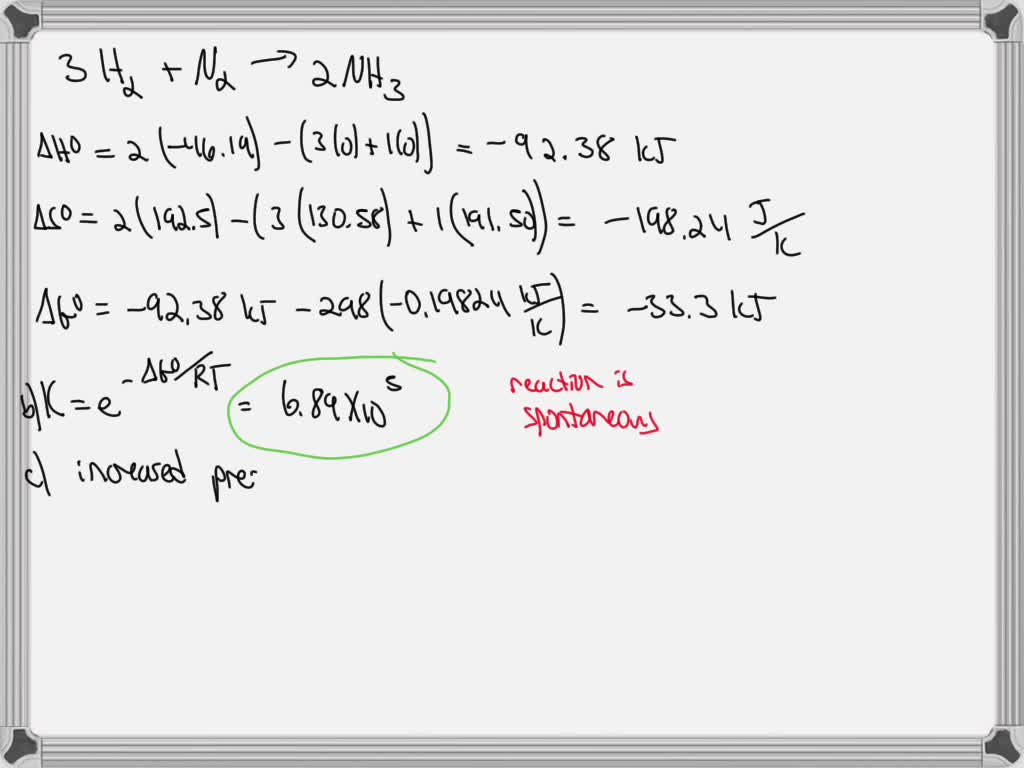 3 H₂ + N₂ → 2NH₃
ΔH° = 2(-46.19) - (3(0) + 1(0)) = -92.38 kJ
ΔS° = 2(192.5) - (3(130.58) + 1(191.50)) = -198.24 J/K
ΔG° = -92.38 kJ - 298(-0.19824 kJ/K) = -33.3 kJ
b) K = e^(-ΔG°/RT) = 6.89 X 10⁵
reaction is
spontaneous
c) increased pre